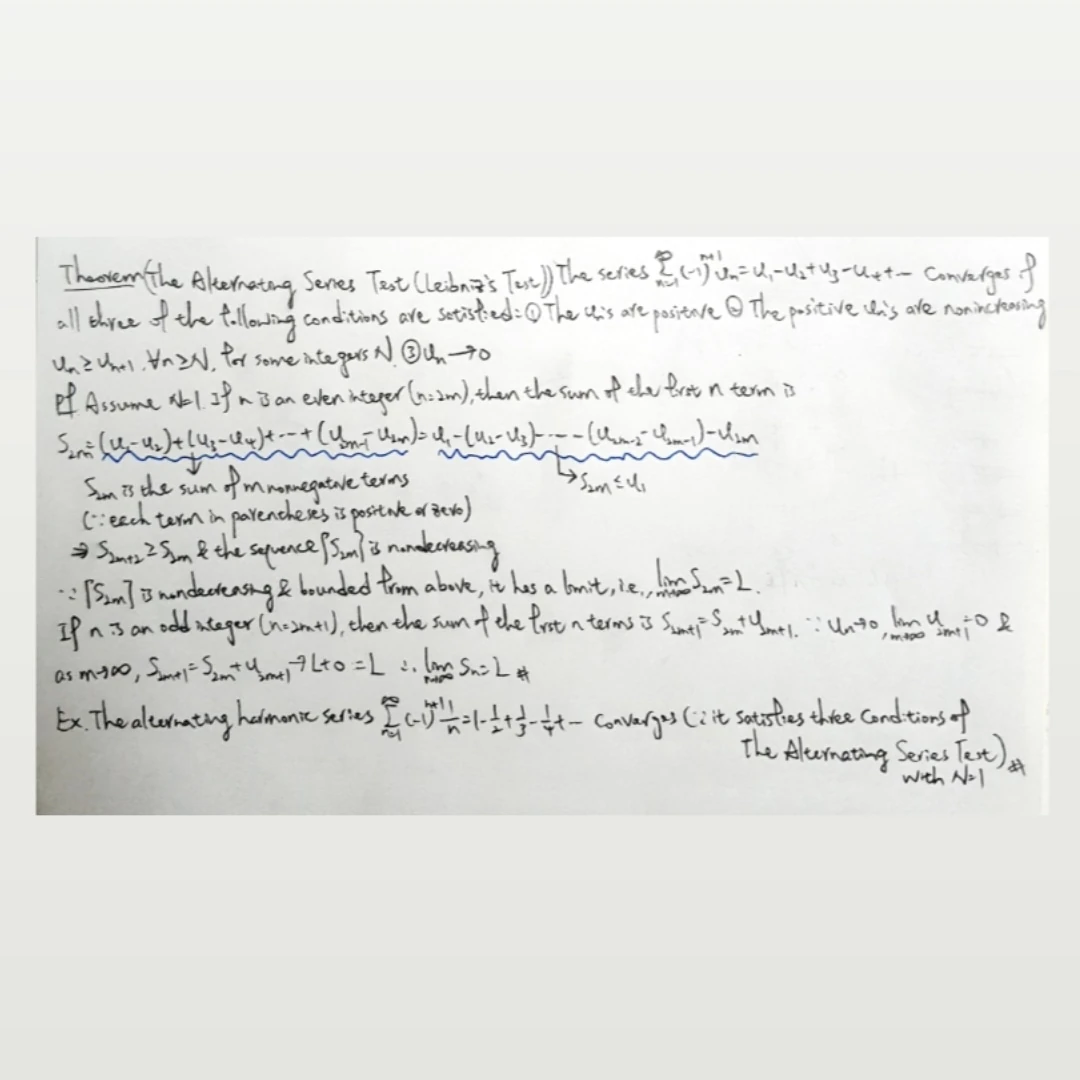 Theorem (The Alternating Series Test (Leibniz's Test)) The series ∑_{n=1}^{∞} (-1)^{n+1} u_n = u_1 - u_2 + u_3 - u_4 + ⋯ converges if
all three of the following conditions are satisfied: ① The u_n's are positive ② The positive u_n's are nonincreasing
u_n ≥ u_{n+1}, ∀n ≥ N, for some integers N. ③ u_n → 0
Pf Assume N=1. If n is an even integer (n=2m), then the sum of the first n term is
S_{2m} = (u_1 - u_2) + (u_3 - u_4) + ⋯ + (u_{2m-1} - u_{2m}) = u_1 - (u_2 - u_3) - ⋯ - (u_{2m-2} - u_{2m-1}) - u_{2m}
S_{2m} is the sum of m nonnegative terms → S_{2m} ≤ u_1
(∵ each term in parentheses is positive or zero)
⇒ S_{2m+2} ≥ S_{2m} & the sequence {S_{2m}} is nondecreasing
∵ {S_{2m}} is nondecreasing & bounded from above, it has a limit, i.e., lim_{m→∞} S_{2m} = L.
If n is an odd integer (n=2m+1), then the sum of the first n terms is S_{2m+1} = S_{2m} + u_{2m+1}. ∵ u_n → 0, lim_{m→∞} u_{2m+1} = 0 &
as m→∞, S_{2m+1} = S_{2m} + u_{2m+1} → L+0 = L ∴ lim_{n→∞} S_n = L #
Ex. The alternating harmonic series ∑_{n=1}^{∞} (-1)^{n+1} 1/n = 1 - 1/2 + 1/3 - 1/4 + ⋯ converges (∵ it satisfies three conditions of
The Alternating Series Test) #
with N=1